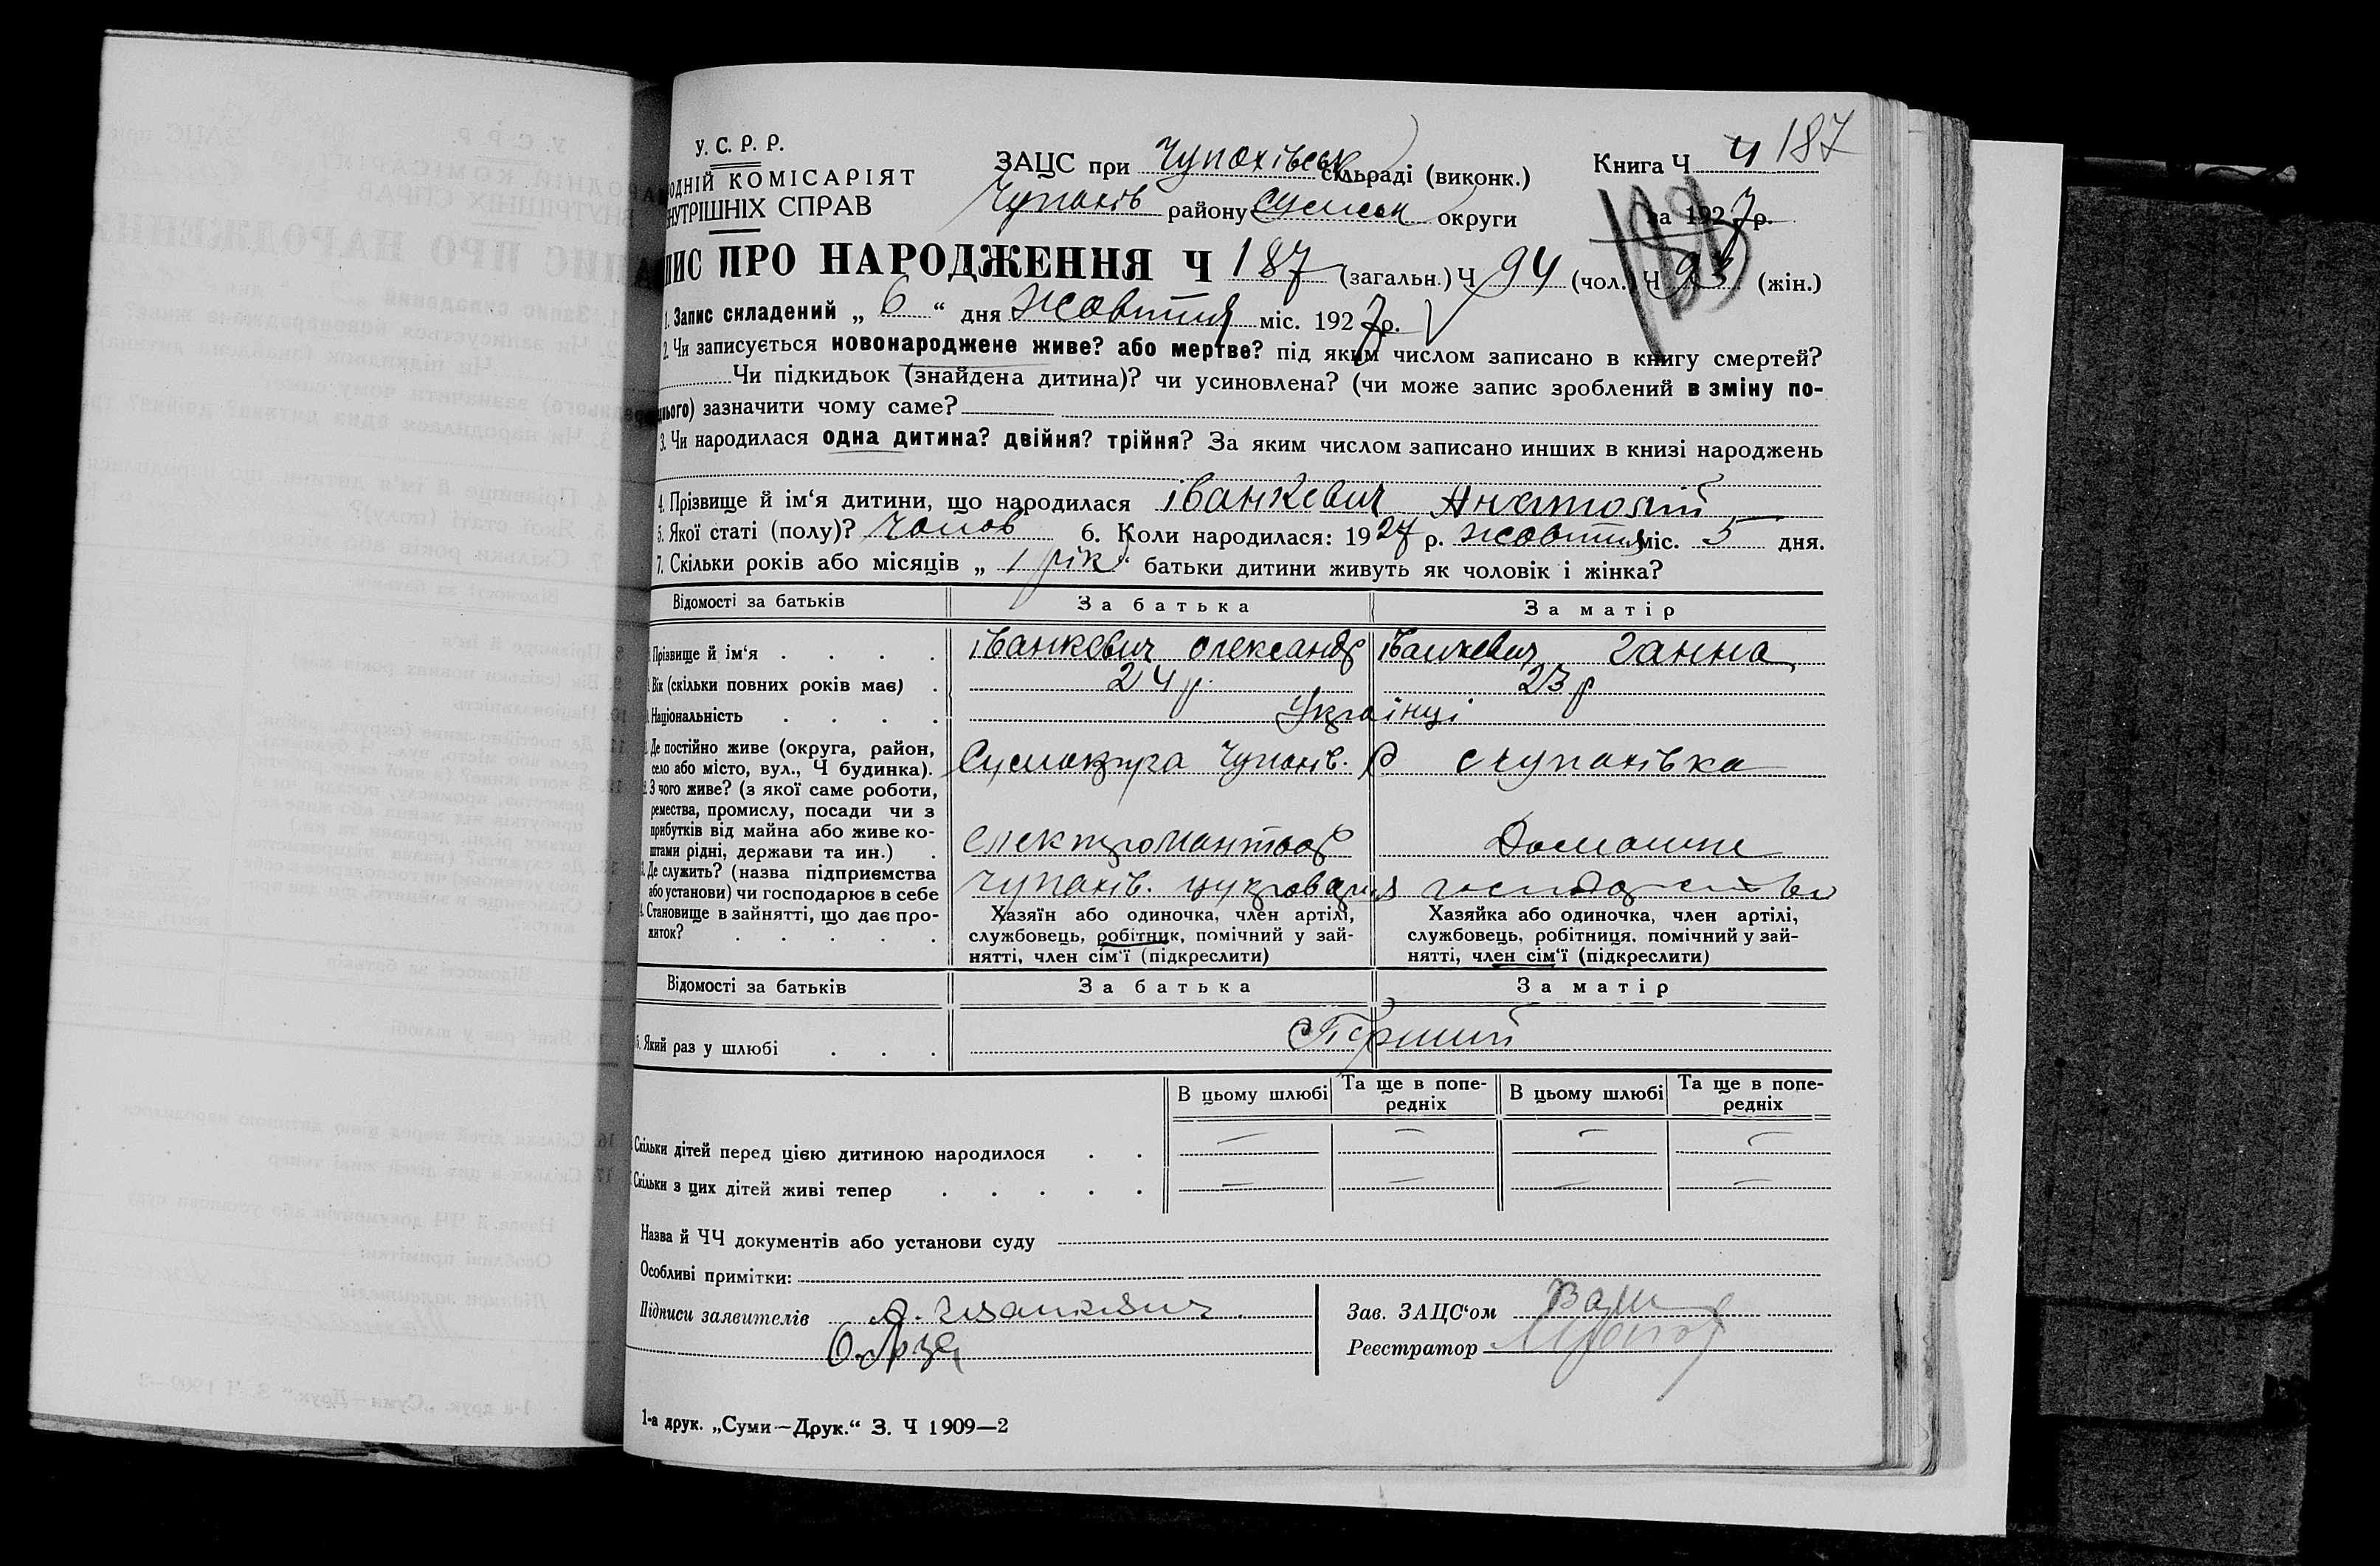 У. С. Р. Р.
ОДНІЙ КОМІСАРІЯТ
НУТРІШНІХ СПРАВ
ЗАЦС при Чупахівськ сільраді (виконк.)
Чупахів району Сумськ округи
Книга Ч 4 187
за 1927 р.
188
ПИС ПРО НАРОДЖЕННЯ Ч 187 (загальн.) Ч 94 (чол.) Ч 93 (жін.)
1. Запис складений „ 6 “ дня Жовтня міс. 1927 р.
2. Чи записується новонароджене живе? або мертве? під яким числом записано в книгу смертей?
Чи підкидьок (знайдена дитина)? чи усиновлена? (чи може запис зроблений в зміну по-
днього) зазначити чому саме?
3. Чи народилася одна дитина? двійня? трійня? За яким числом записано инших в книзі народжень
4. Прізвище й ім‘я дитини, що народилася Іванкевич Анатолій
5. Якої статі (полу)? чолов 6. Коли народилася: 1927 р. жовтня міс. 5 дня.
7. Скільки років або місяців „ 1 рік “ батьки дитини живуть як чоловік і жінка?
Відомості за батьків За батька За матір
Прізвище й ім‘я . . . . Іванкевич Олександр Іванкевич Ганна
Вік (скільки повних років має) . 24 р. 23 р
Національність . . . . Українці
Де постійно живе (округа, район,
село або місто, вул., Ч будинка). Сумокруга Чупахів. р с Чупахівка
З чого живе? (з якої саме роботи,
ремества, промислу, посади чи з
прибутків від майна або живе ко-
штами рідні, держави та ин.) . Електромонтьор Домашнє
Де служить? (назва підприємства
або установи) чи господарює в себе Чупахів. цукроварня господарство
Становище в зайнятті, що дає про-
житок? . . . . .
Хазяїн або одиночка, член артілі,
службовець, робітник, помічний у зай-
нятті, член сім‘ї (підкреслити)
Хазяйка або одиночка, член артілі,
службовець, робітниця, помічний у зай-
нятті, член сім‘ї (підкреслити)
Відомості за батьків За батька За матір
Який раз у шлюбі . . . Перший
В цьому шлюбі Та ще в попе-редніх В цьому шлюбі Та ще в попе-редніх
Скільки дітей перед цією дитиною народилося . . — — — —
Скільки з цих дітей живі тепер . . . . . — — — —
Назва й ЧЧ документів або установи суду
Особливі примітки:
Підписи заявителів А. Иванкевич
Зав. ЗАЦС‘ом
Реєстратор
1-а друк. „Суми—Друк.“ З. Ч 1909—2